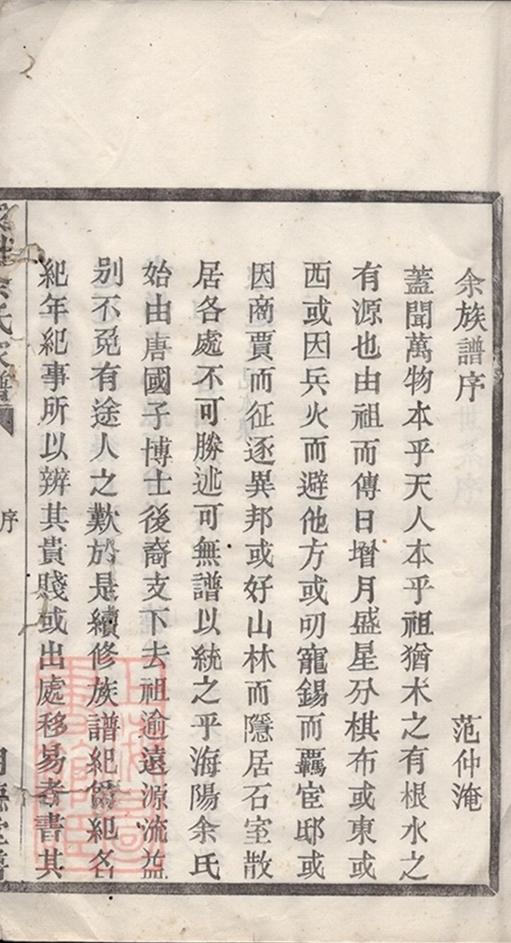 余族譜序 范仲淹
蓋聞萬物本乎天人本乎祖猶木之有根水之
有源也由祖而傳日增月盛星分棋布或東或
西或因兵火而避他方或叨寵錫而羈宦邸或
因商賈而征逐異邦或好山林而隱居石室散
居各處不可勝述可無譜以統之乎海陽余氏
始由唐國子博士後裔支下去祖逾遠源流益
別不免有途人之歎於是續修族譜紀諱紀名
紀年紀事所以辨其貴賤或出處移易者書其
余氏家譜 序